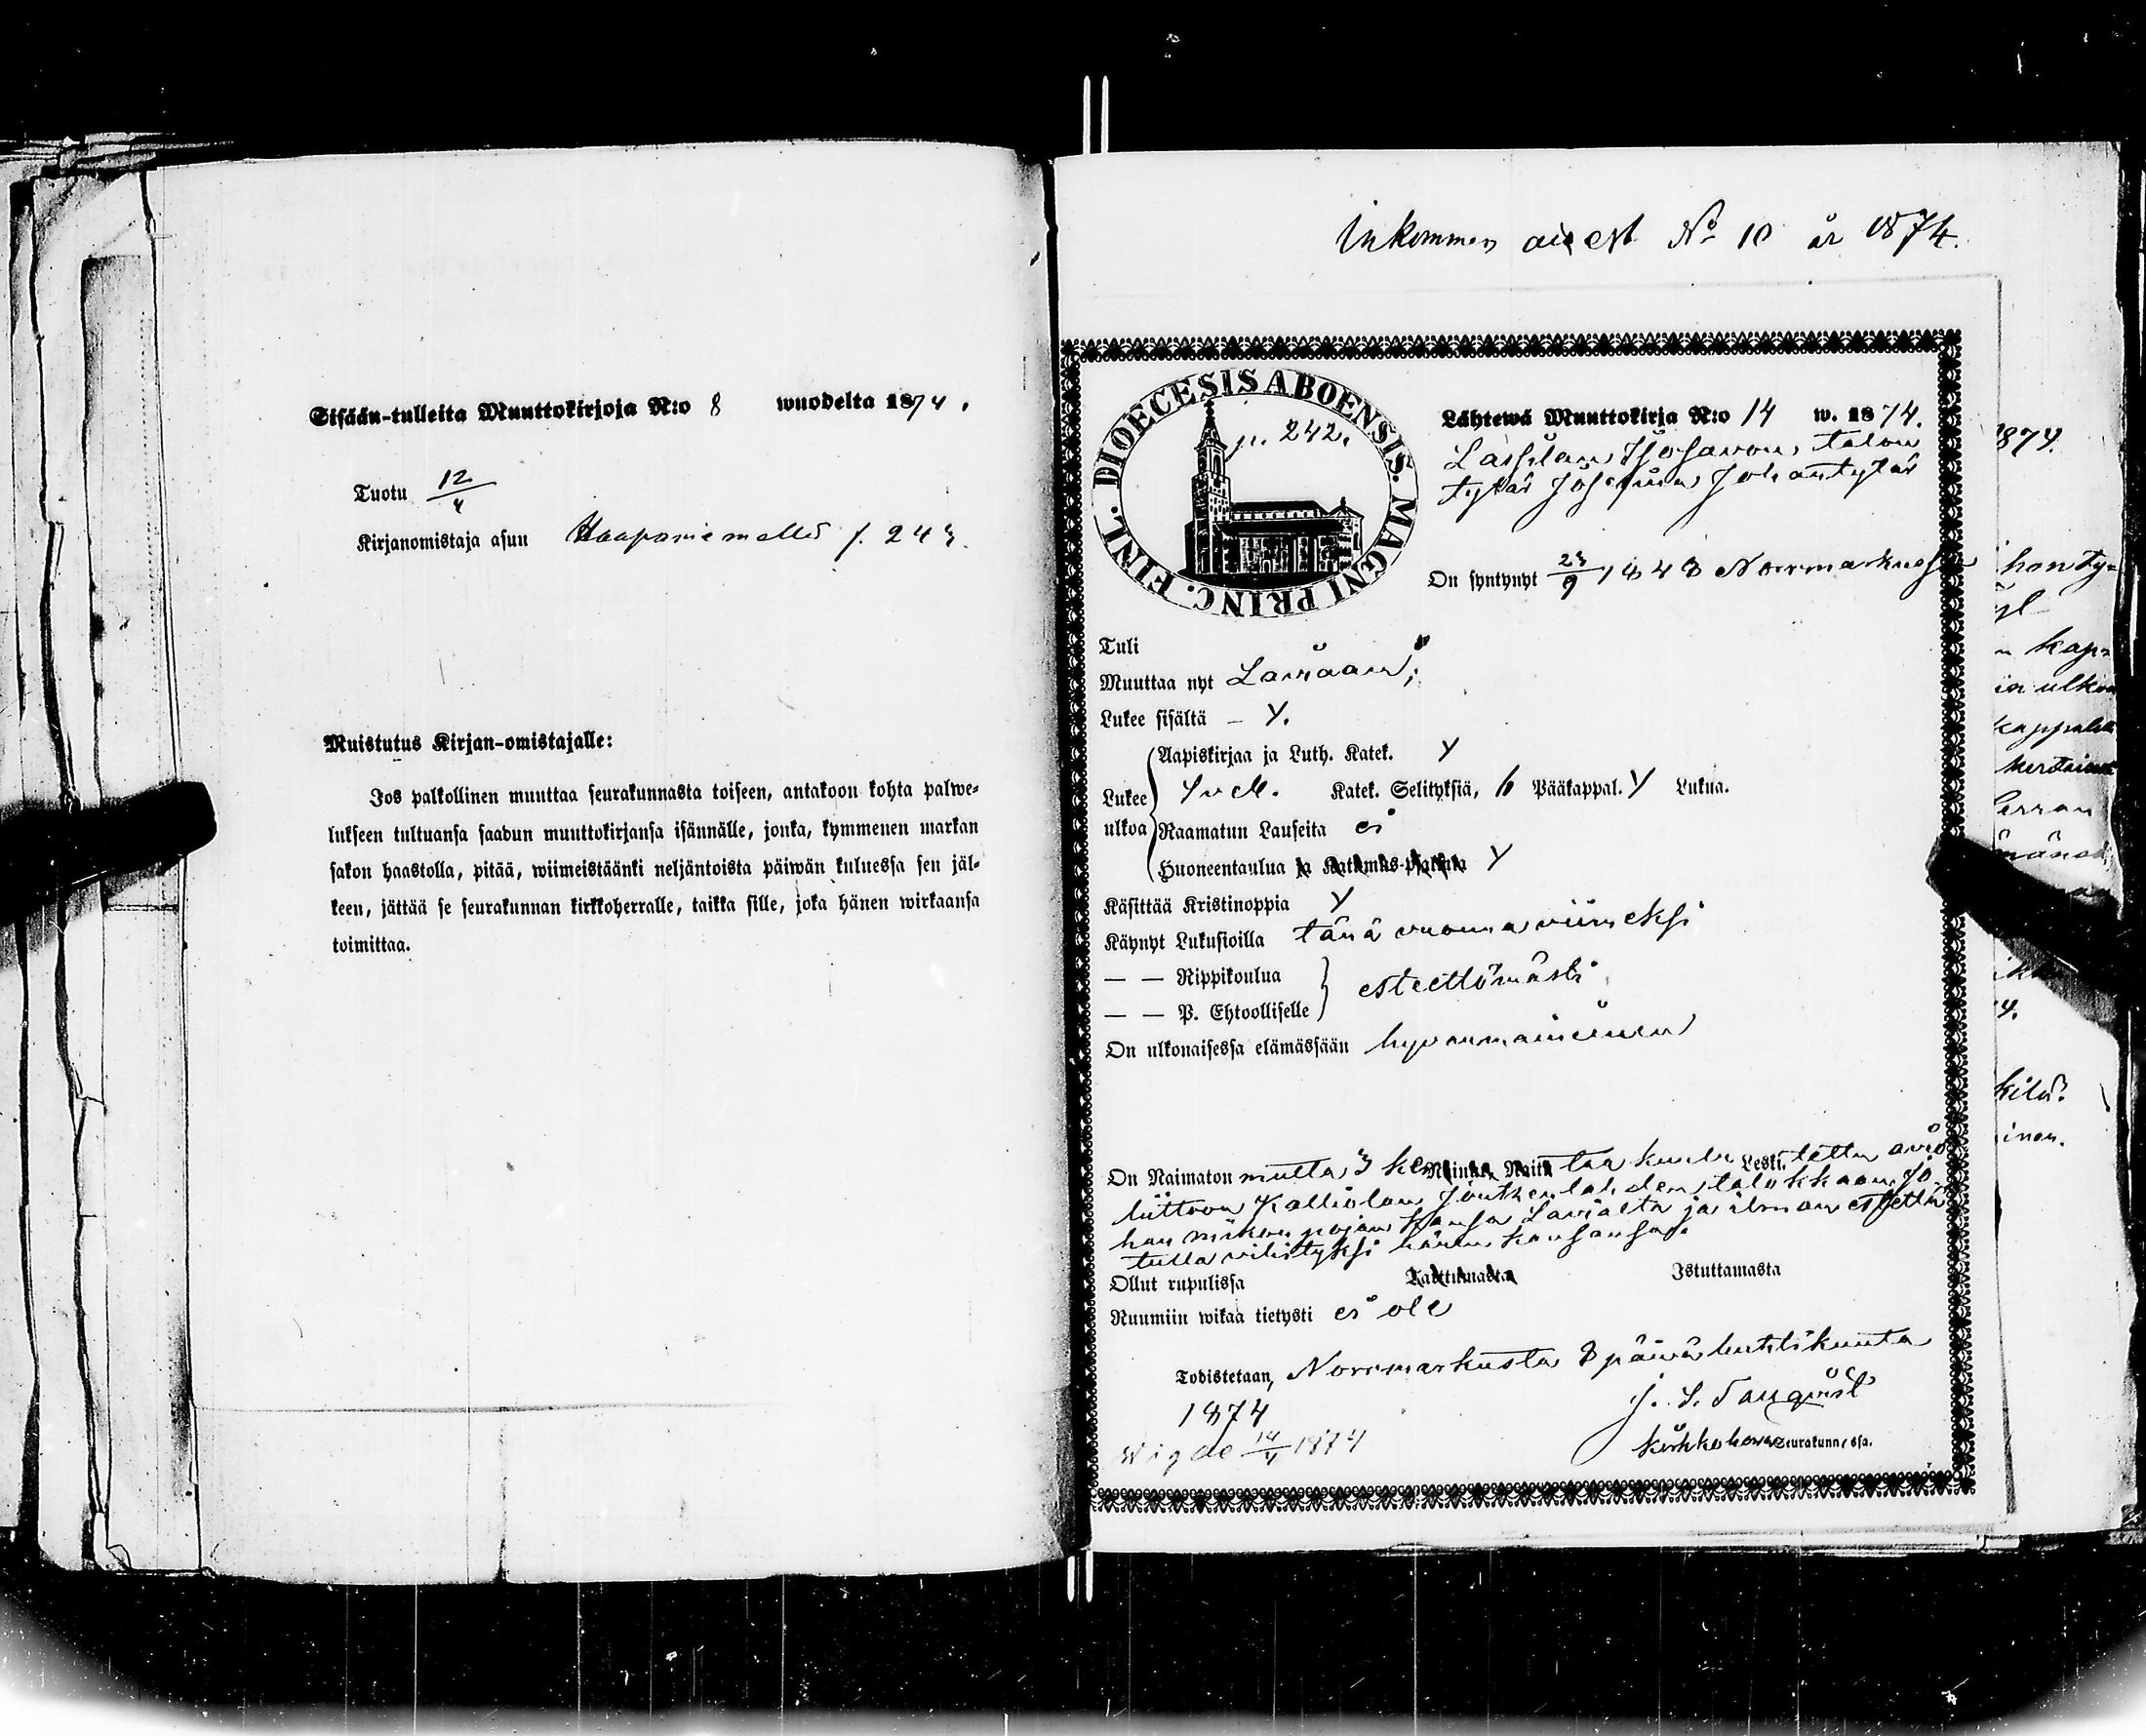 Sisään-tulleita Muuttokirjoja N:o 8 wuodelta 1874.
Tuotu 12/4
Kirjanomistaja asuu Haapaniemellä f. 243.
Muistutus Kirjan-omistajalle:
Jos palkollinen muuttaa seurakunnasta toiseen, antakoon kohta palwe-
lukseen tultuansa saadun muuttokirjansa isännälle, jonka, kymmenen markan
sakon haastolla, pitää, wiimeistäänki neljäntoista päiwän kuluessa sen jäl-
keen, jättää se seurakunnan kirkkoherralle, taikka sille, joka hänen wirkaansa
toimittaa.
Inkommen attest No 10 år 1874.
DIOECESIS ABOENSIS. MAGNI PRINC. FINL.
p. 242.
Lähtewä Muuttokirja N:o 14 w. 1874.
talon
tytär Josefiina Johantytär
On syntynyt 23/9 1848 Norrmarkussa
Tuli
Muuttaa nyt Laviaan;
Lukee sisältä – Y.
Lukee ulkoa
Aapiskirjaa ja Luth. Katek. Y
Katek. Selityksiä, 6 Pääkappal. Y Lukua.
Raamatun Lauseita ei
Huoneentaulua ja Katumus-psalmia Y
Käsittää Kristinoppia Y
Käynyt Lukusioilla tänä vuonna viimeksi
— — Rippikoulua
— — P. Ehtoolliselle
esteettömästi
On ulkonaisessa elämässään hyvänmaineinen
On Naimaton mutta 3 ker Naitu taa kuulutettu avio
liittoon Kalliolan Jouttenlahden talokkaan Jo-
han Mikonpojan kanssa Lavialta ja ilman estettä
tulla vihityksi hänen kanssansa.
Ollut rupulissa Tarttumasta Istuttamasta
Ruumiin wikaa tietysti ei ole
Todistetaan, Norrmarkusta 8 päivä huhtikuuta
1874
J. S. Tanqvist
Wigde 14/4 1874
kirkkoherra Seurakunnassa.